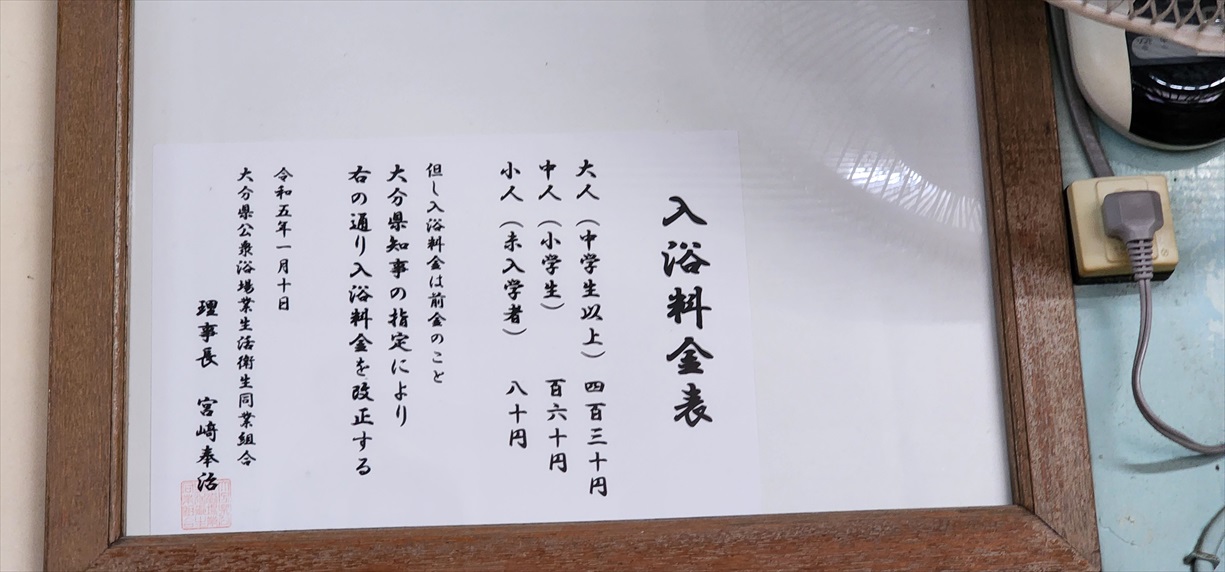 入浴料金表
大人（中学生以上）　四百三十円
中人（小学生）　百六十円
小人（未入学者）　八十円
但し入浴料金は前金のこと
大分県知事の指定により
右の通り入浴料金を改正する
令和五年一月十日
大分県公衆浴場業生活衛生同業組合
理事長　宮﨑奉活